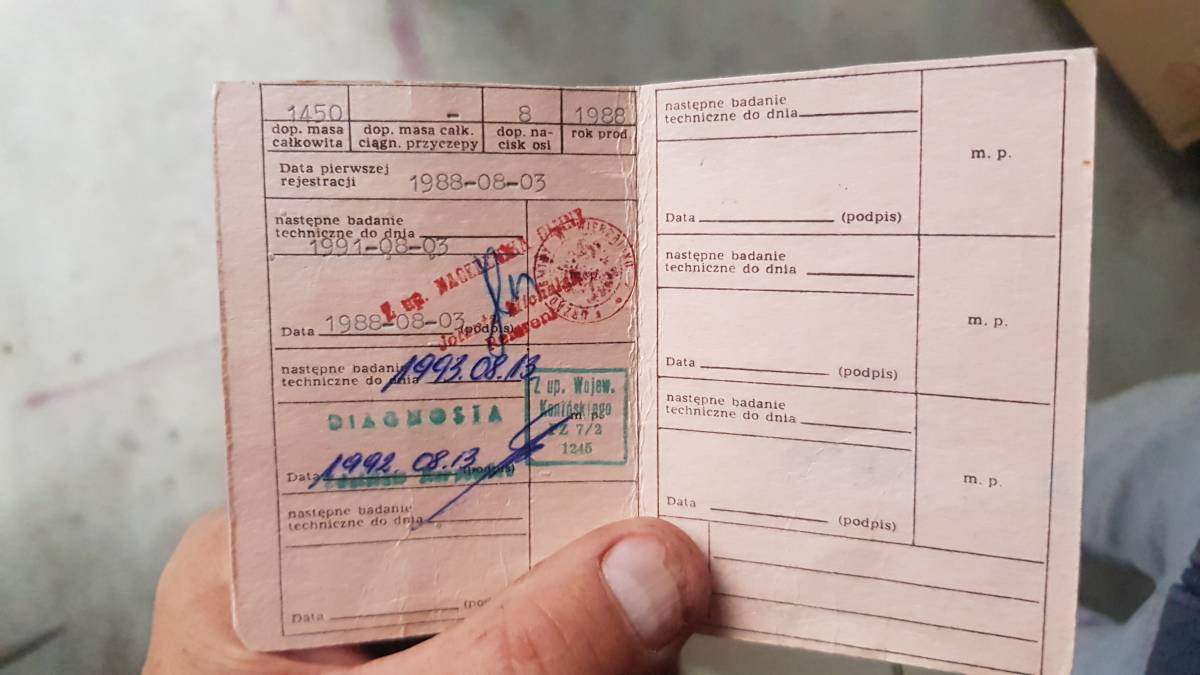 1450 - 8 1988
dop. masa całkowita dop. masa całk. ciągn. przyczepy dop. nacisk osi rok prod.
Data pierwszej
rejestracji 1988-08-03
następne badanie
techniczne do dnia
1991-08-03
Z up. NACZELNIKA GMINY
Data 1988-08-03 (podpis)
następne badanie
techniczne do dnia 1993.08.13
DIAGNOSTA
Z up. Wojew.
Konińskiego
m. p.
7/2
1245
Data 1992.08.13 (podpis)
następne badanie
techniczne do dnia
Data
następne badanie
techniczne do dnia
m. p.
Data (podpis)
następne badanie
techniczne do dnia
m. p.
Data (podpis)
następne badanie
techniczne do dnia
m. p.
Data (podpis)